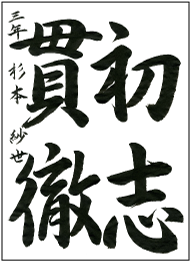 初志
貫徹
三年 杉本 紗世